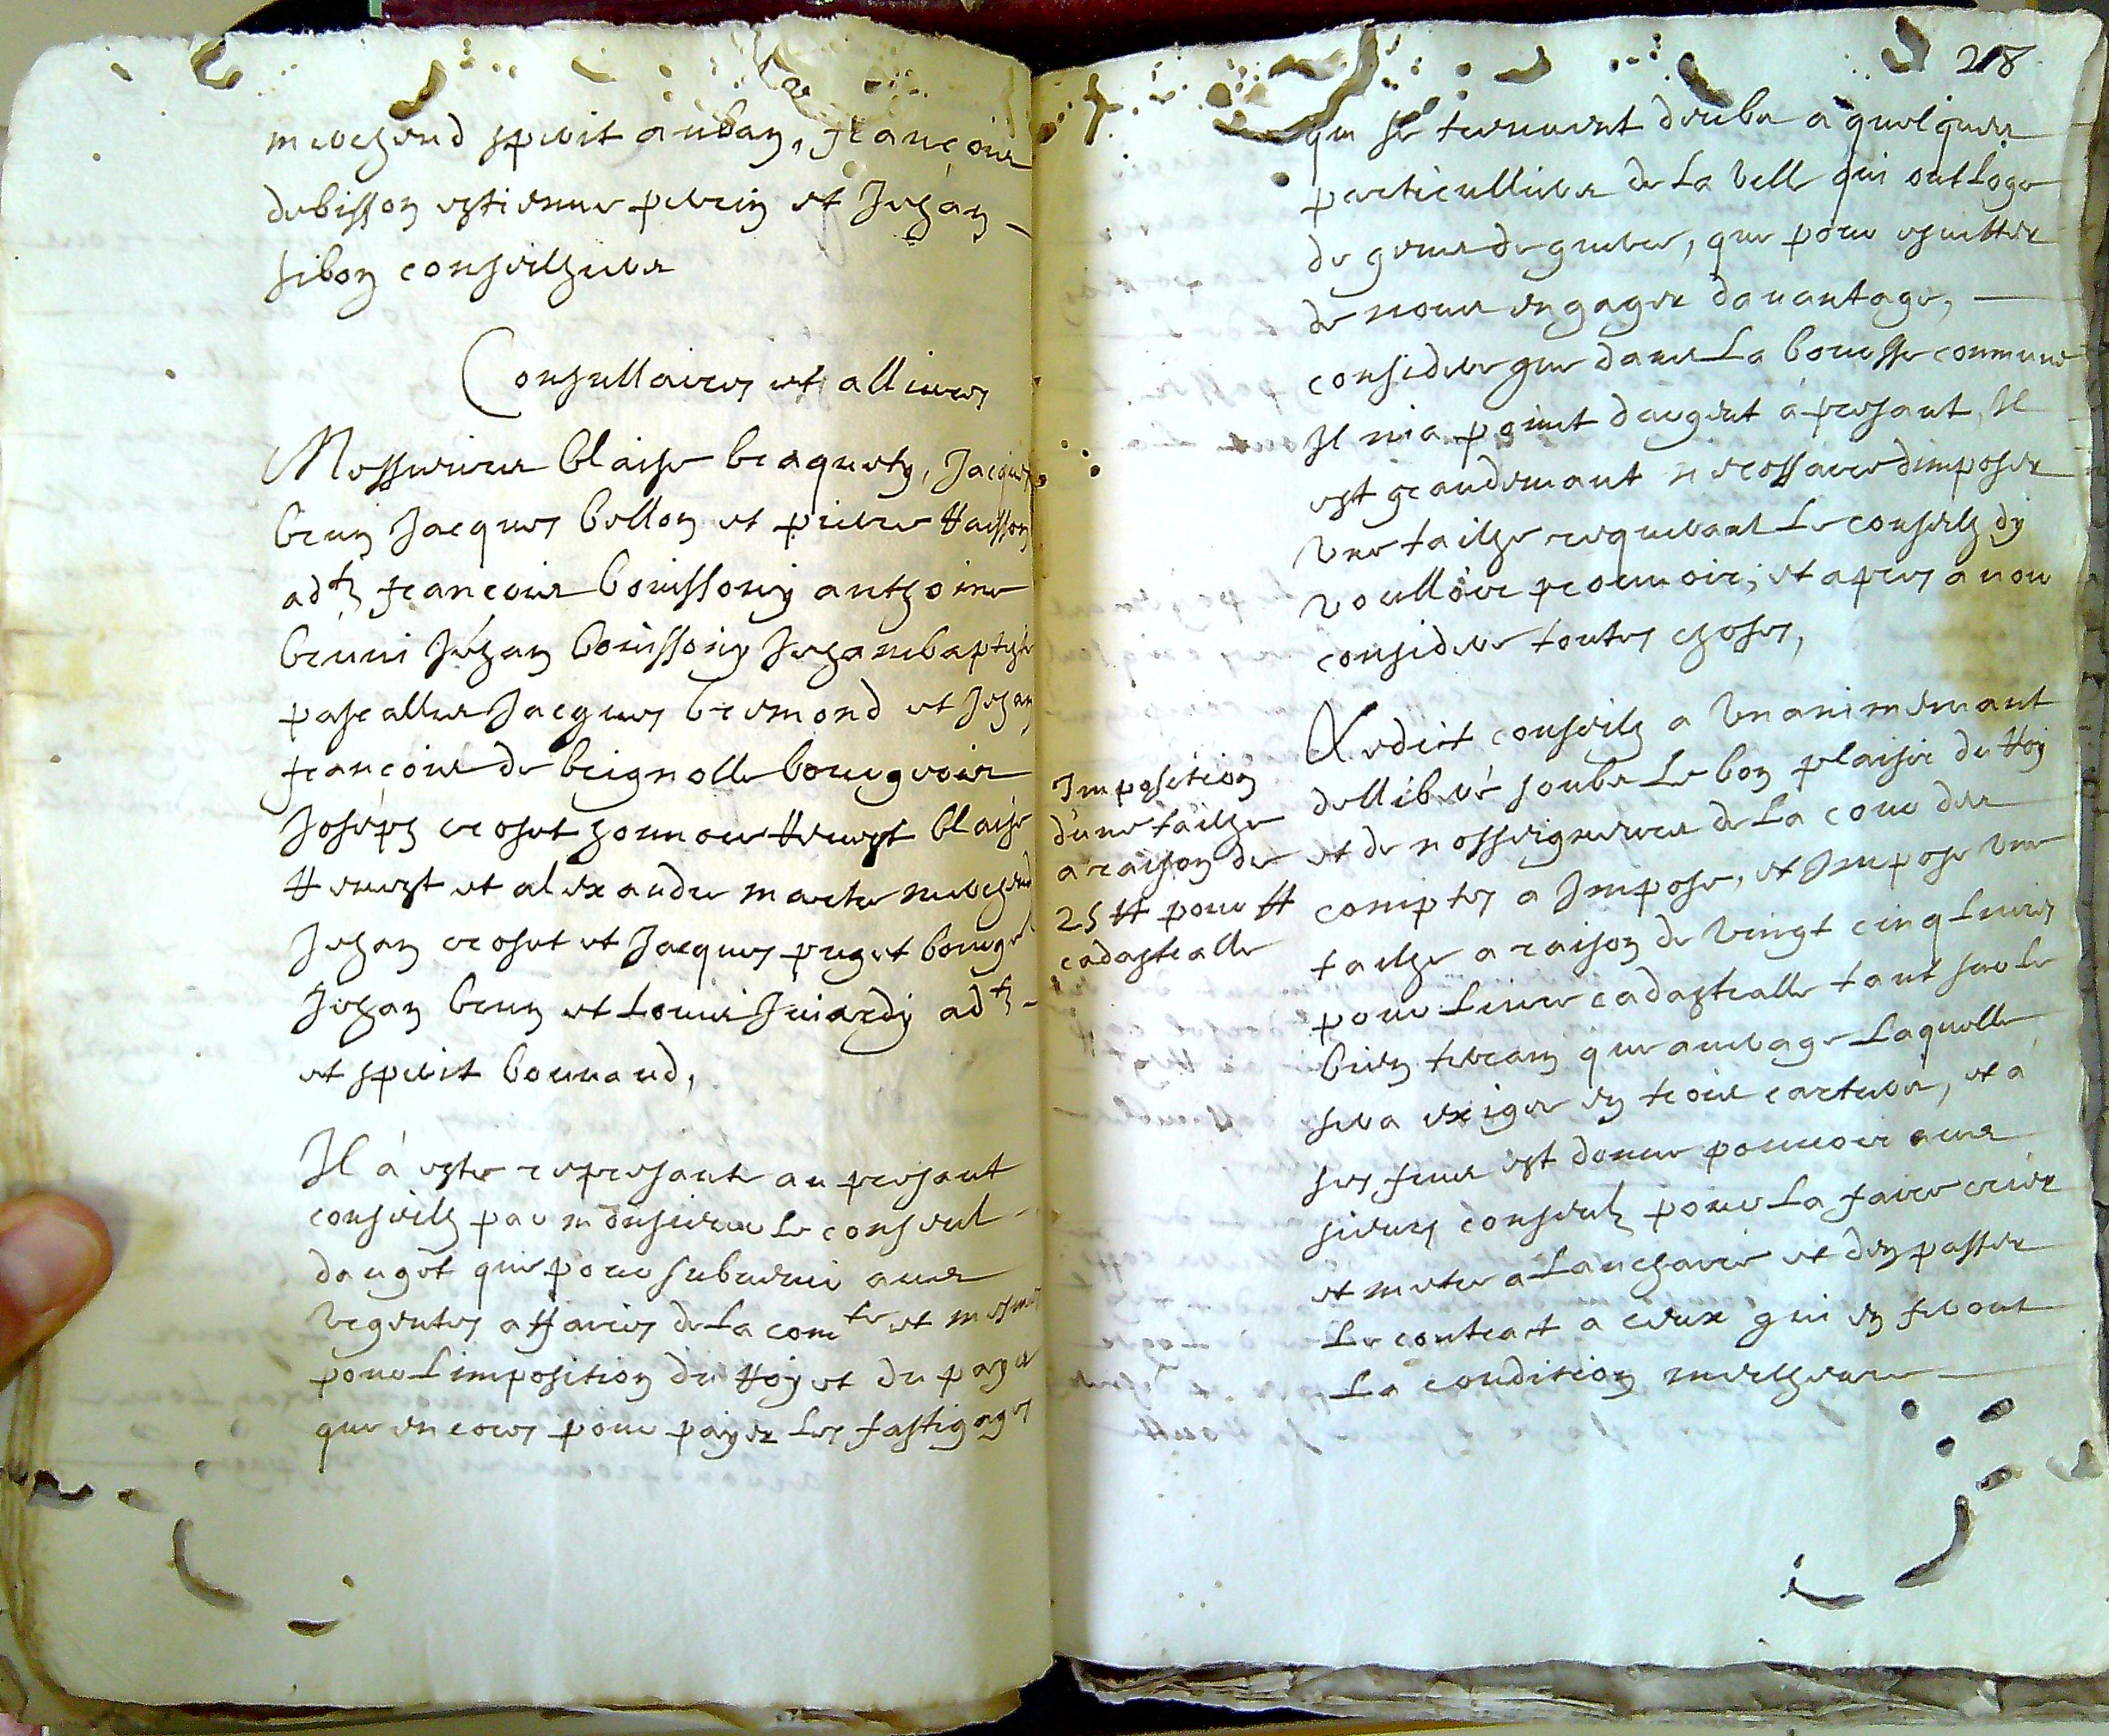 merchand sperit auban, françois
debisson estienne perrin et Jehan
sibon conseilhiers
Consullaires et allieurs
Messieurs blaise braquety, Jacques
brun Jacques bellon et pierre Raisson
adts françois bouissony anthoine
bruni Jehan bouissony Jehan baptiste
pascallis Jacques bremond et Jehan
françois de brignolle bourgeois
Joseph croset honnoré Reuest blaise
Reuest et alexandre martin merchand
Jehan croset et Jacques puget bourgs
Jehan brun et Louis Juiardy adts
et sperit bournaud,
Il á esté represanté au presant
conseilh par monsieur le conseul
dauget que pour subuenir aux
vrgentes affaires de La comté et mesmes
pour Limposition du Roy et du pays
que encores pour payer les fastigages
218
qui se treuuent deubs a quelques
particulliers de La ville qui ont Logé
de gens de guerre, que pour esuitter
de nous engager dauantage,
considere que dans La boursse commune
Il nia point dargent á presant, Il
est grandemant necessaire dimposer
vne tailhe requerant Le conseilh dy
voulloir prouuoir; et apres auoir
considere toutes choses,
Ledict conseilh a vnanimemant
delliberé soubs Le bon plaisir du Roy
et de nosseigneurs de La cour des
comptes a Imposé, et Impose vne
tailhe a raison de vingt cinq Liures
pour Liure cadastralle tant sur Le
bien terrain que auerage Laquelle
sera exigée en trois cartiers, et á
ses fins est donné pouuoir aux
sieurs conseulz pour La faire crier
et metre a Lanchaire et den passer
Le contract a ceux qui en feront
La condition meilheure
Imposition
dune tailhe
a raison de
25 ₶ pour ₶
cadastralle